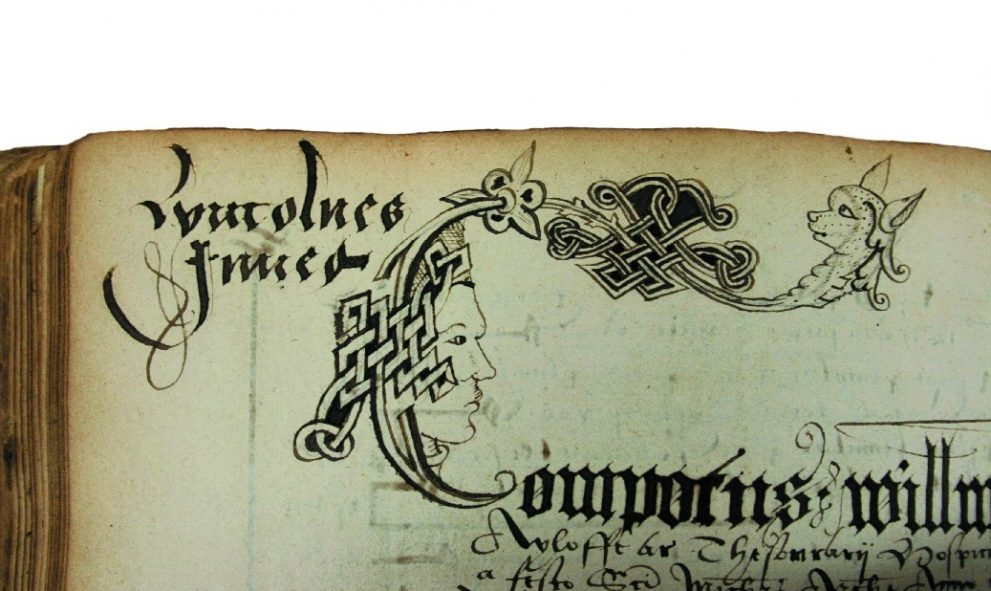 Lyncolnes
Innes
Compotus willm
Aylofft ar Thesorarij Hospici
a festo Sci